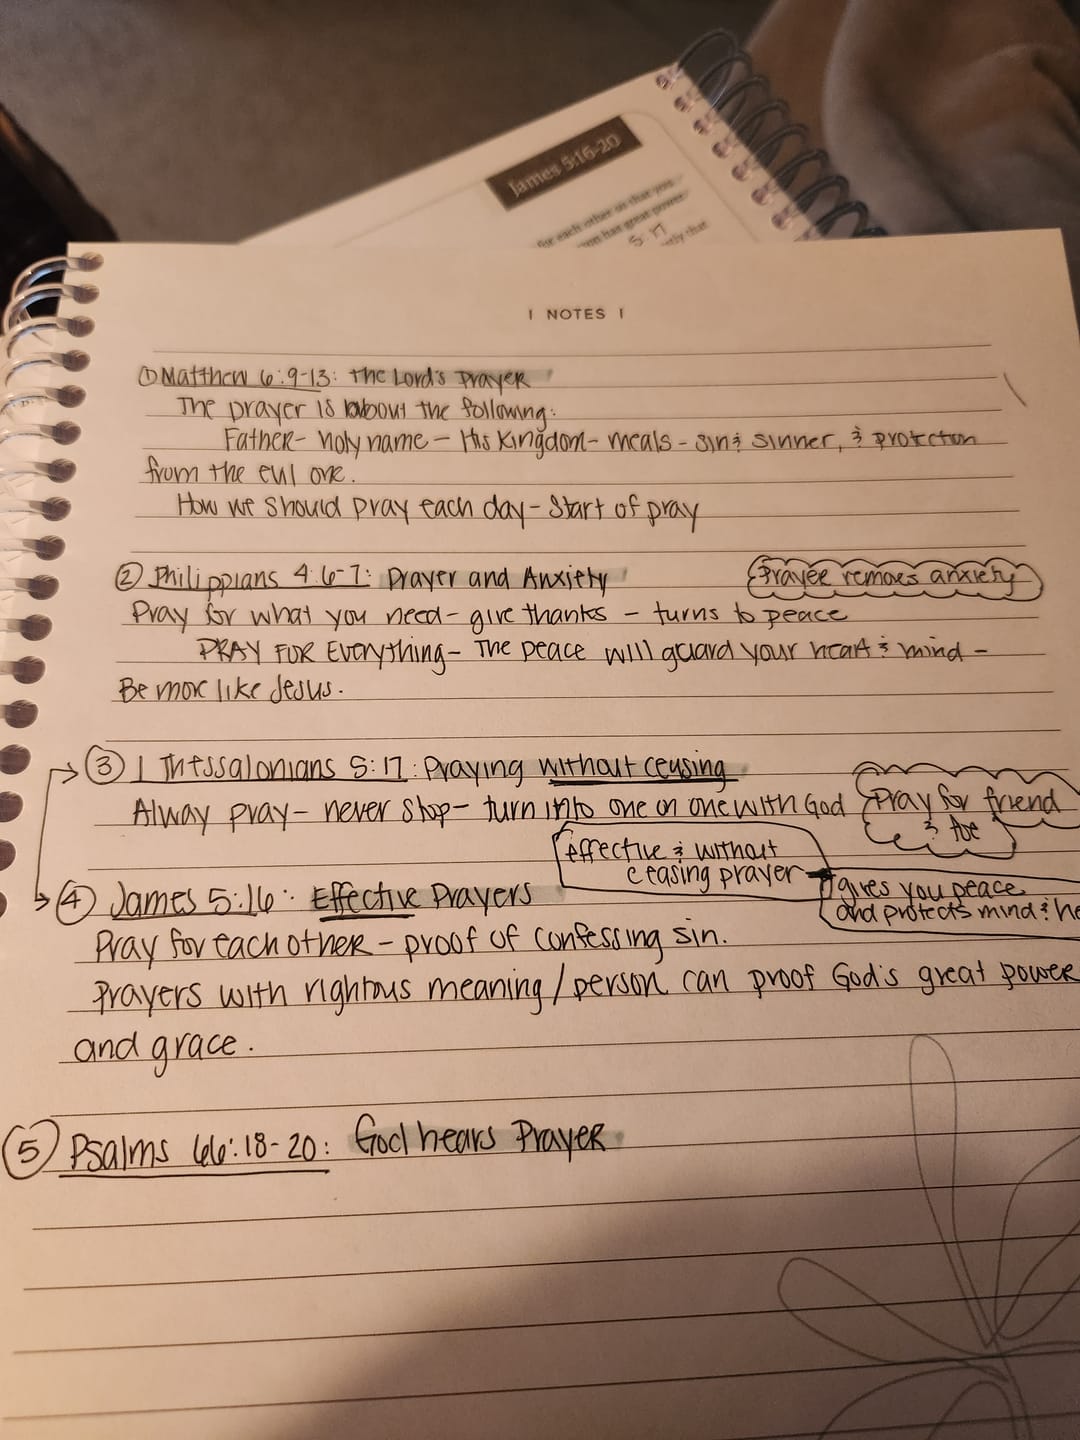 James 5:16-20
for each other so that you
son has great power
5:17
that
| NOTES |
① Matthew 6:9-13: The Lord's Prayer
The prayer is about the following:
Father- holy name - His Kingdom- meals - sin & sinner, & protection
from the evil one.
How we should pray each day- Start of pray
② Philippians 4:6-7: Prayer and Anxiety
Prayer removes anxiety
Pray for what you need- give thanks - turns to peace
PRAY FOR Everything- The peace will guard your heart & mind -
Be more like Jesus.
③ 1 Thessalonians 5:17: Praying without ceasing
Alway pray- never stop- turn into one on one with God
Pray for friend
& foe
effective & without
ceasing prayer
gives you peace
and protects mind & he
④ James 5:16: Effective Prayers
Pray for each other - proof of confessing sin.
Prayers with rightous meaning/person can proof God's great power
and grace.
⑤ Psalms 66:18-20: God hears Prayer